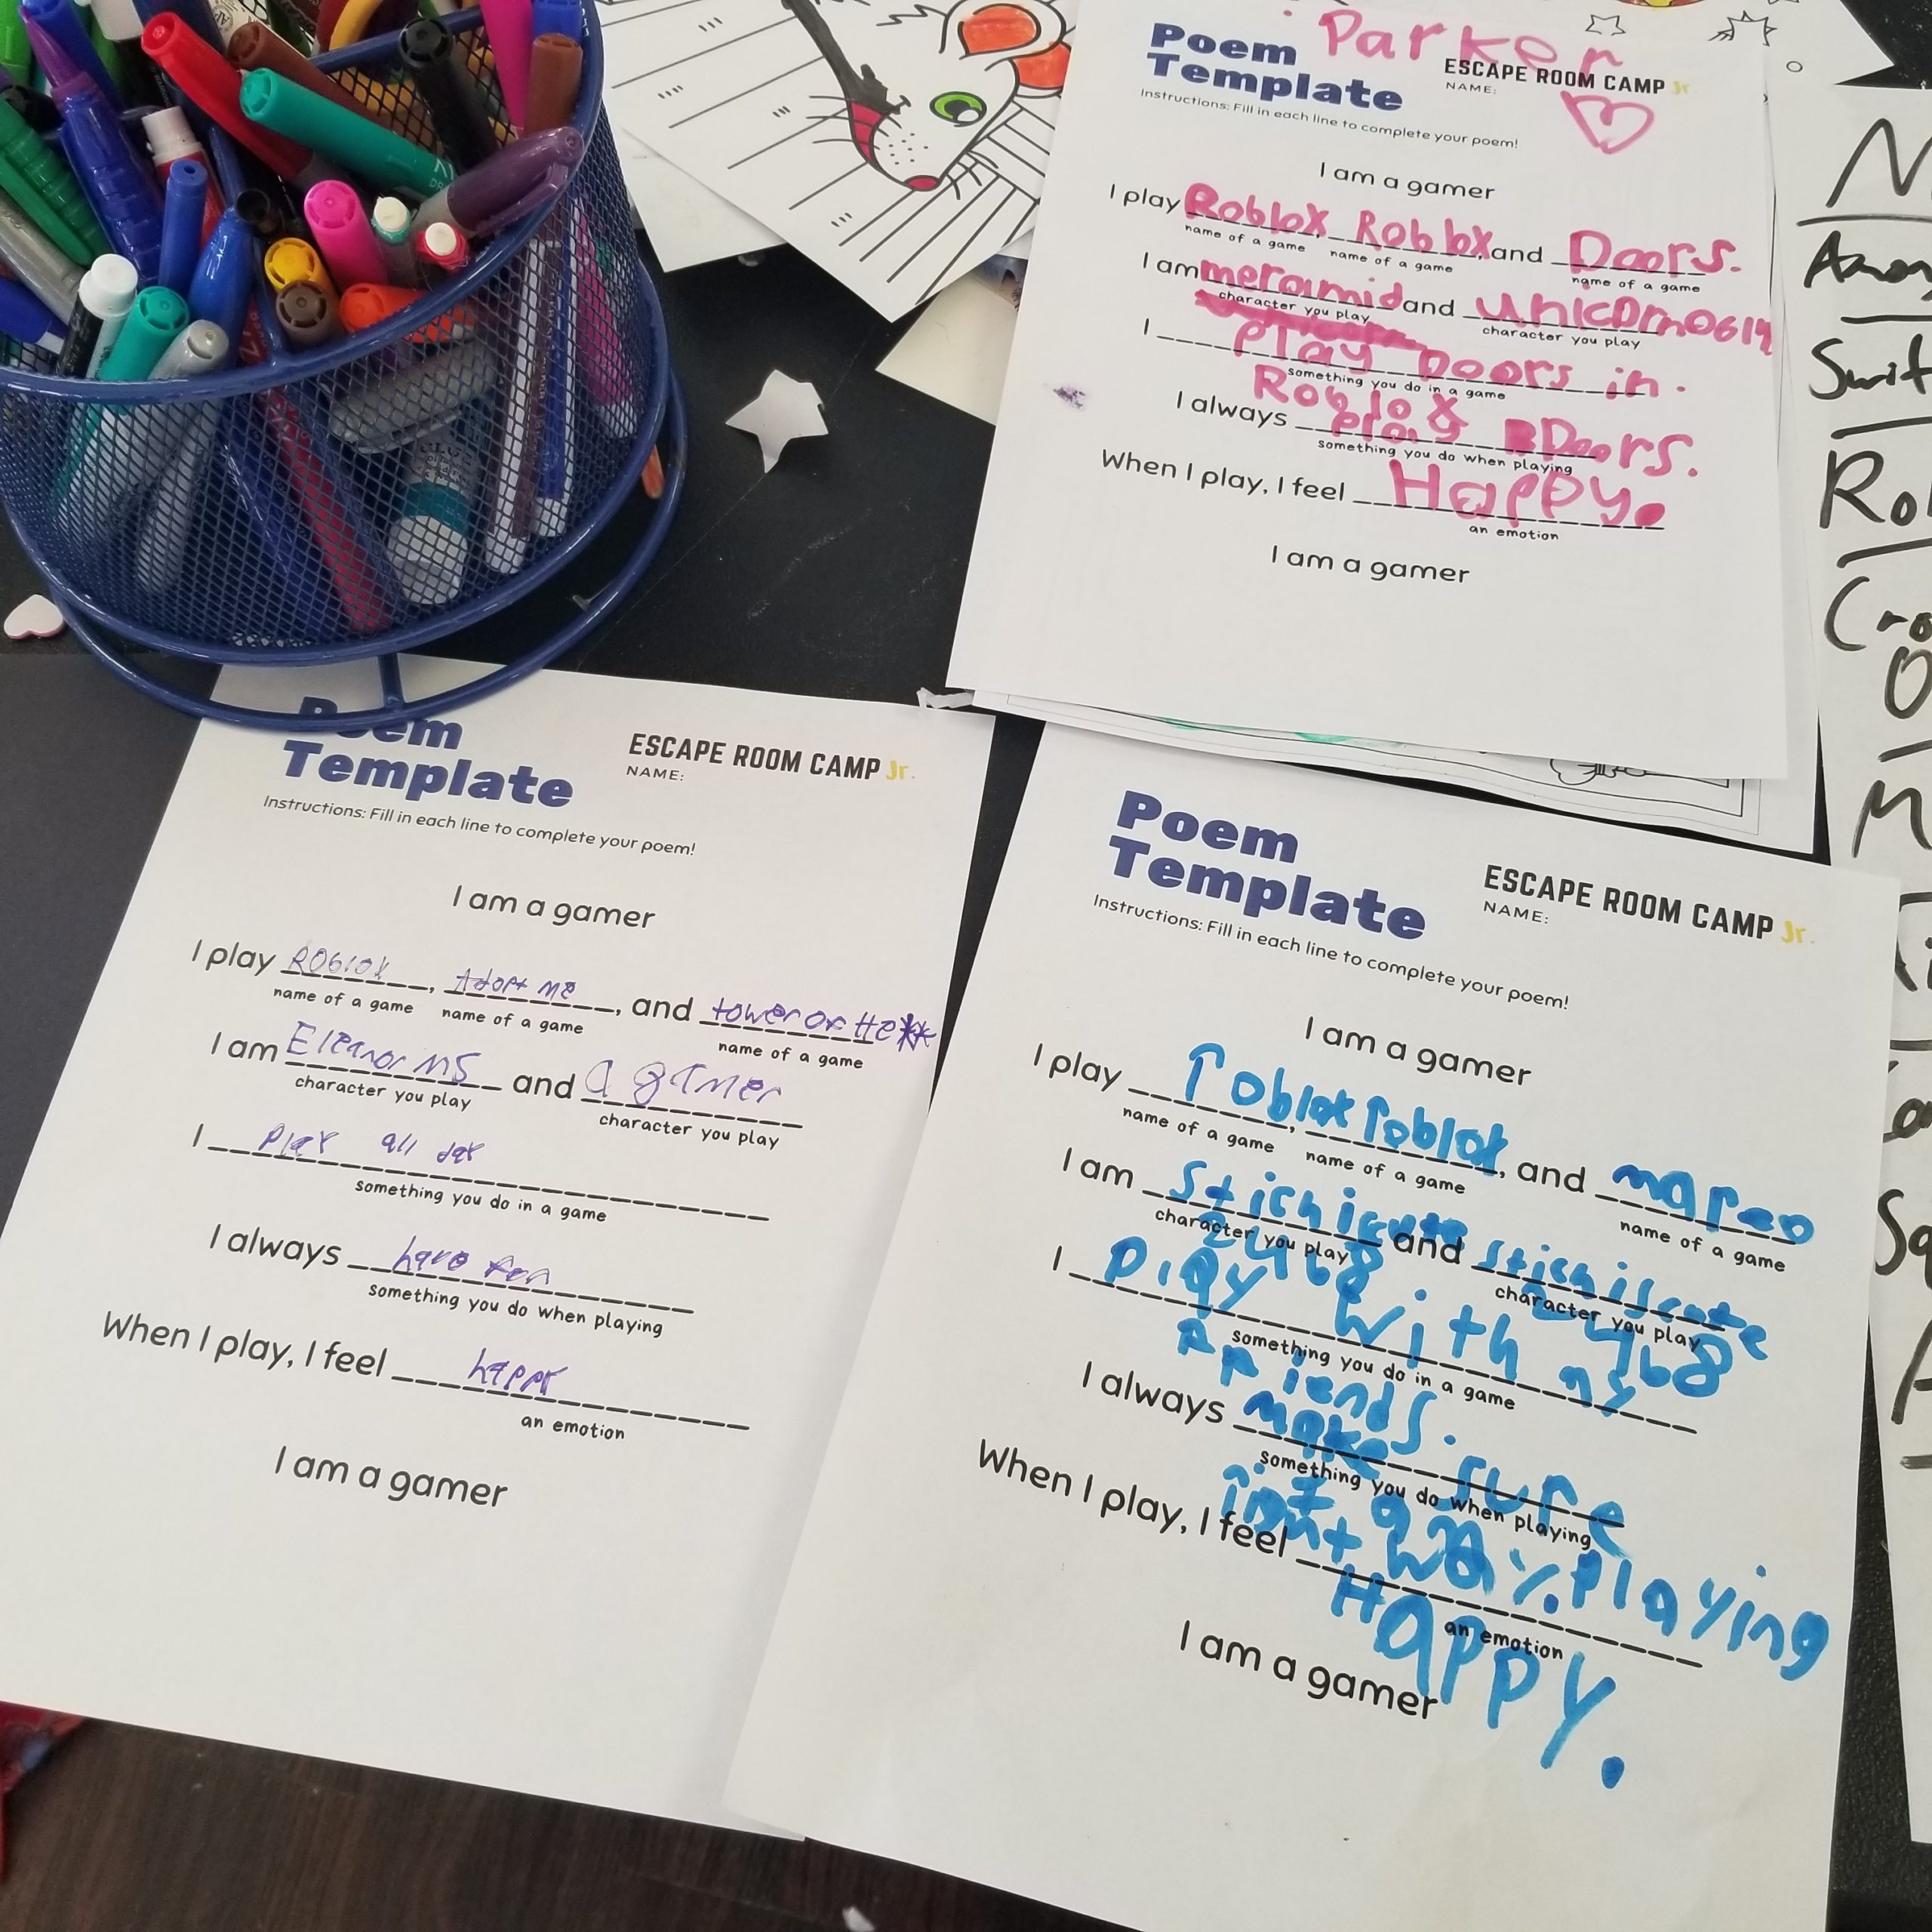 Parker
Poem
Template
ESCAPE ROOM CAMP Jr.
NAME:
Instructions: Fill in each line to complete your poem!
I am a gamer
I play Roblox, Roblox, and Doors.
name of a game name of a game name of a game
I am meramid and unicorn0614
character you play character you play
I play Doors in.
something you do in a game
Roblox
I always play Doors.
something you do when playing
When I play, I feel Happy.
an emotion
I am a gamer
Poem
Template
ESCAPE ROOM CAMP Jr.
NAME:
Instructions: Fill in each line to complete your poem!
I am a gamer
I play Roblox, Adopt me, and tower of He**
name of a game name of a game name of a game
I am Eleanor MS and a gamer
character you play character you play
I play all day
something you do in a game
I always have fun
something you do when playing
When I play, I feel happy
an emotion
I am a gamer
Poem
Template
ESCAPE ROOM CAMP Jr.
NAME:
Instructions: Fill in each line to complete your poem!
I am a gamer
I play roblox, roblox, and mareo
name of a game name of a game name of a game
I am stichiscute and stichiscute
character you play character you play
2468 2468
I play with my
something you do in a game
friends.
I always make sure
something you do when playing
right way. playing
When I play, I feel Happy.
an emotion
I am a gamer